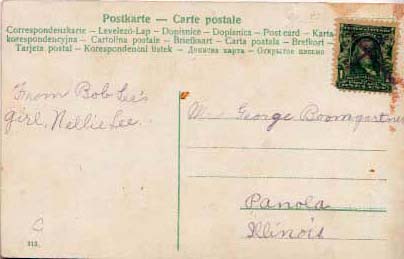 Postkarte — Carte postale
Correspondenzkarte – Levelező-Lap – Dopisnice – Dopisnica – Post card – Karta
korespondencyjna – Cartolina postale – Briefkaart – Carta postala – Brefkort –
Tarjeta postal – Korespondenční listek – Дописна карта – Открытое письмо
From Bob Lee's
girl, Nellie Lee.
George Boomgartner
Panola
Illinois
313.